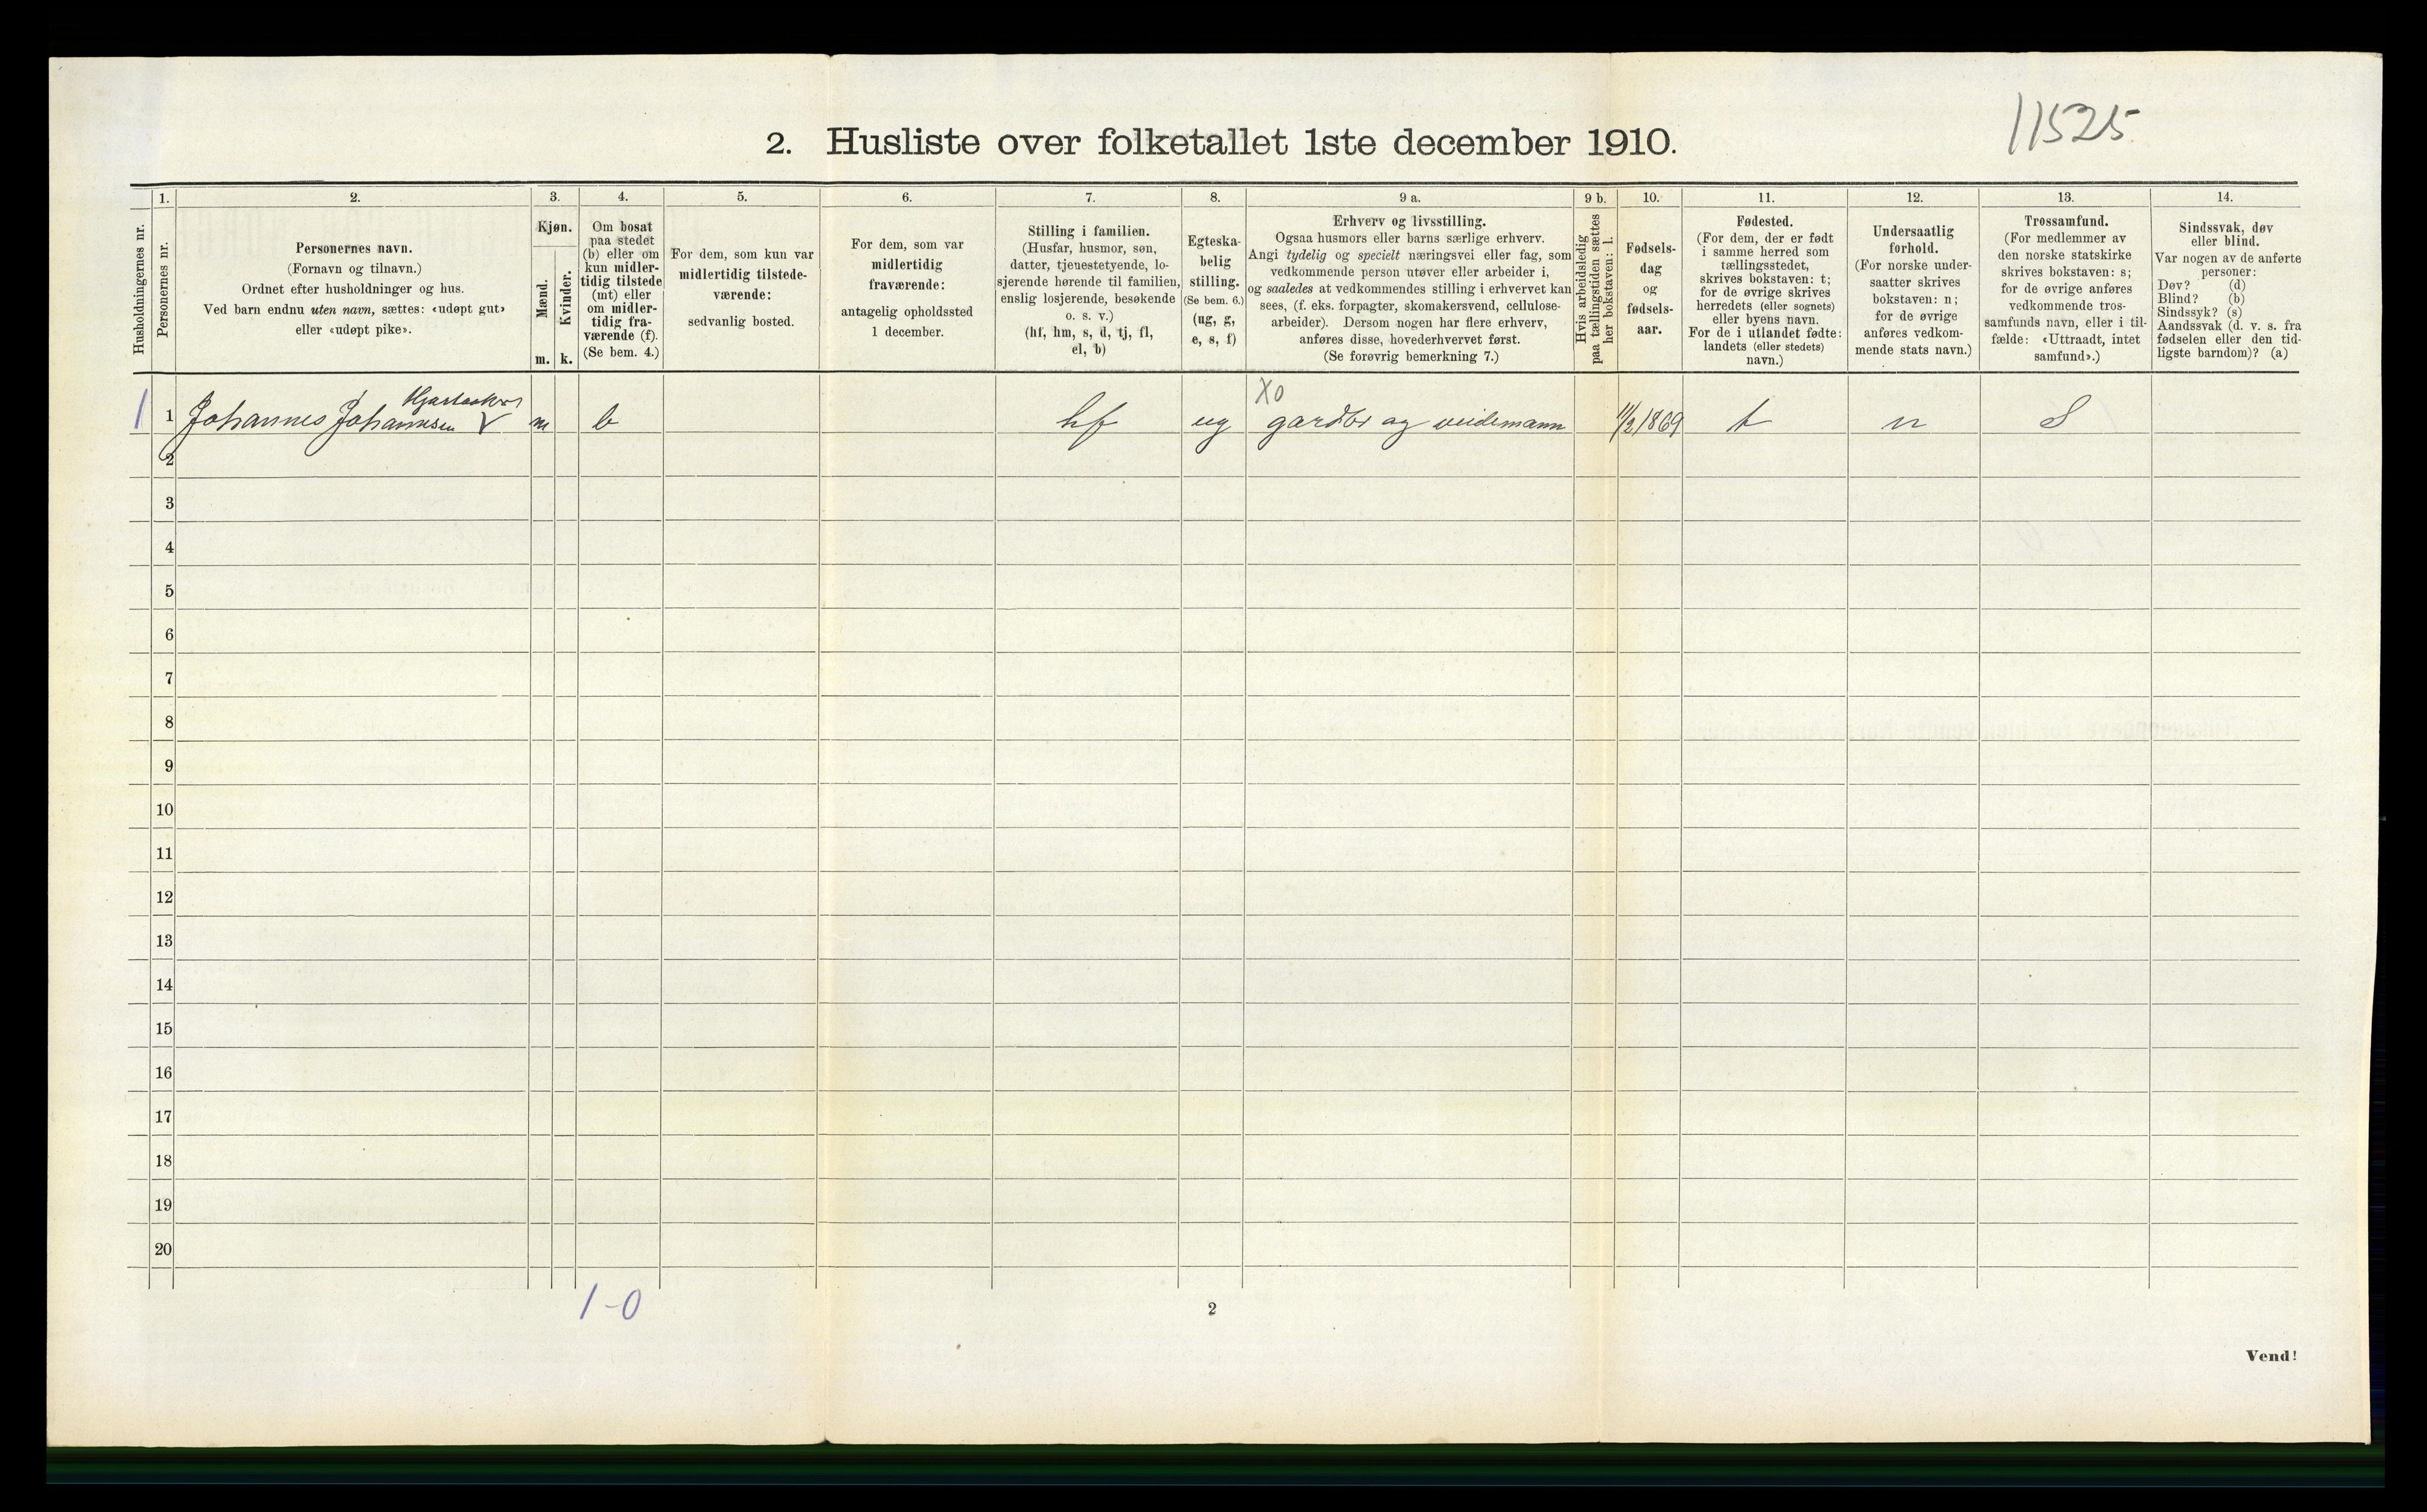 11525
2. Husliste over folketallet 1ste december 1910.
Husholdningernes nr.
1.
Personernes nr.
2.
Personernes navn.
(Fornavn og tilnavn.)
Ordnet efter husholdninger og hus.
Ved barn endnu uten navn, sættes: «udøpt gut»
eller «udøpt pike».
3.
Kjøn.
Mænd.
m.
Kvinder.
k.
4.
Om bosat
paa stedet
(b) eller om
kun midler-
tidig tilstede
(mt) eller
om midler-
tidig fra-
værende (f).
(Se bem. 4.)
5.
For dem, som kun var
midlertidig tilstede-
værende:
sedvanlig bosted.
6.
For dem, som var
midlertidig
fraværende:
antagelig opholdssted
1 december.
7.
Stilling i familien.
(Husfar, husmor, søn,
datter, tjenestetyende, lo-
sjerende hørende til familien,
enslig losjerende, besøkende
o. s. v.)
(hf, hm, s, d, tj, fl,
el, b)
8.
Egteska-
belig
stilling.
(Se bem. 6.)
(ug, g,
e, s, f)
9 a.
Erhverv og livsstilling.
Ogsaa husmors eller barns særlige erhverv.
Angi tydelig og specielt næringsvei eller fag, som
vedkommende person utøver eller arbeider i,
og saaledes at vedkommendes stilling i erhvervet kan
sees, (f. eks. forpagter, skomakersvend, cellulose-
arbeider). Dersom nogen har flere erhverv,
anføres disse, hovederhvervet først.
(Se forøvrig bemerkning 7.)
9 b.
Hvis arbeidsledig
paa tællingstiden sættes
her bokstaven: l.
10.
Fødsels-
dag
og
fødsels-
aar.
11.
Fødested.
(For dem, der er født
i samme herred som
tællingsstedet,
skrives bokstaven: t;
for de øvrige skrives
herredets (eller sognets)
eller byens navn.
For de i utlandet fødte:
landets (eller stedets)
navn.)
12.
Undersaatlig
forhold.
(For norske under-
saatter skrives
bokstaven: n;
for de øvrige
anføres vedkom-
mende stats navn.)
13.
Trossamfund.
(For medlemmer av
den norske statskirke
skrives bokstaven: s;
for de øvrige anføres
vedkommende tros-
samfunds navn, eller i til-
fælde: «Uttraadt, intet
samfund».)
14.
Sindssvak, døv
eller blind.
Var nogen av de anførte
personer:
Døv? (d)
Blind? (b)
Sindssyk? (s)
Aandssvak (d. v. s. fra
fødselen eller den tid-
ligste barndom)? (a)
X0
1 1 Johannes Johannesen V m b hf ug gardbr og veidemann 11/2 1869 t n S
2
3
4
5
6
7
8
9
10
11
12
13
14
15
16
17
18
19
20
1-0
2
Vend!